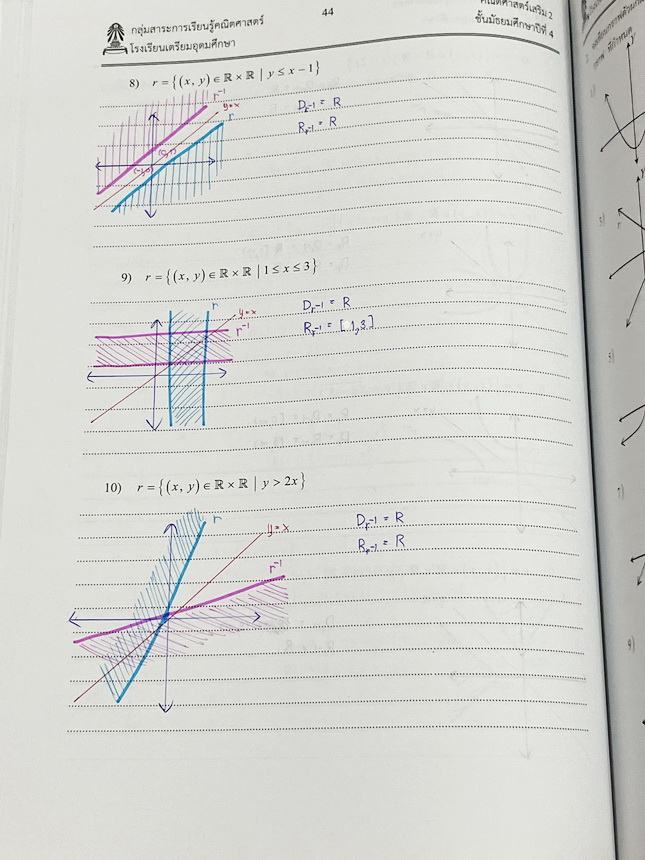 44
กลุ่มสาระการเรียนรู้คณิตศาสตร์
โรงเรียนเตรียมอุดมศึกษา
คณิตศาสตร์เสริม 2
ชั้นมัธยมศึกษาปีที่ 4
8) r = {(x, y) ∈ ℝ × ℝ | y ≤ x − 1}
r⁻¹
y=x
r
D_r⁻¹ = R
R_r⁻¹ = R
9) r = {(x, y) ∈ ℝ × ℝ | 1 ≤ x ≤ 3}
r
y=x
r⁻¹
D_r⁻¹ = R
R_r⁻¹ = [1,3]
10) r = {(x, y) ∈ ℝ × ℝ | y > 2x}
r
y=x
r⁻¹
D_r⁻¹ = R
R_r⁻¹ = R